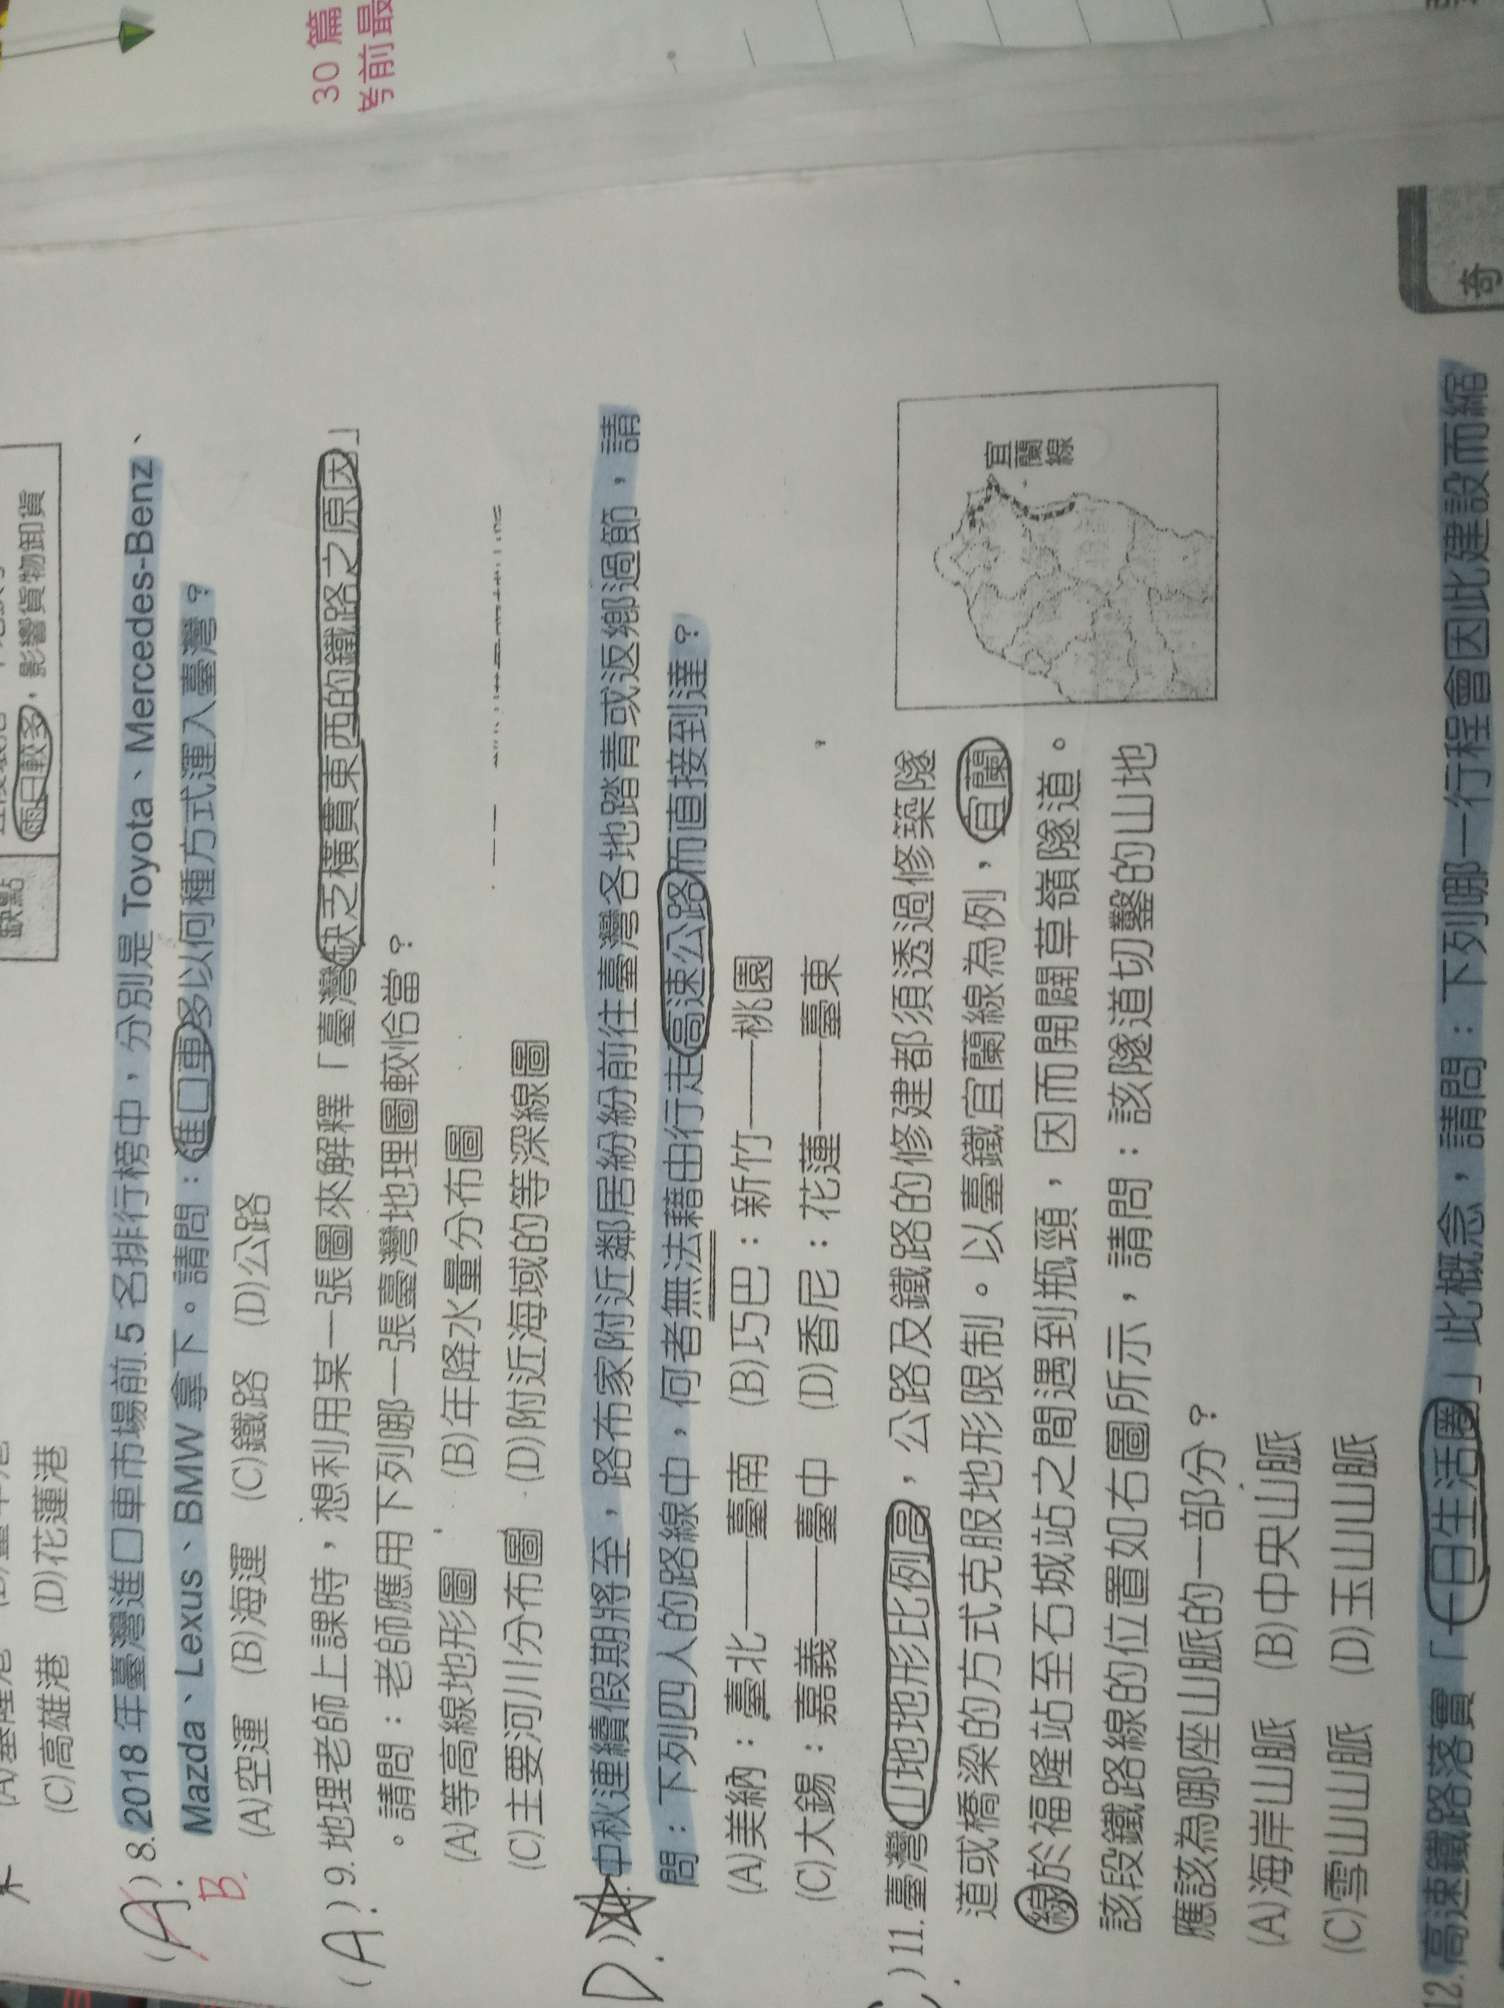 30 篇
考前最
缺點
雨日較多,影響貨物卸貨
(C)高雄港 (D)花蓮港
(A) 8. 2018 年臺灣進口車市場前 5 名排行榜中,分別是 Toyota、Mercedes-Benz、
B. Mazda、Lexus、BMW 拿下。請問:進口車多以何種方式運入臺灣?
(A)空運 (B)海運 (C)鐵路 (D)公路
(A) 9. 地理老師上課時,想利用某一張圖來解釋「臺灣缺乏橫貫東西的鐵路之原因」
。請問:老師應用下列哪一張臺灣地理圖較恰當?
(A)等高線地形圖 (B)年降水量分布圖
(C)主要河川分布圖 (D)附近海域的等深線圖
D. ) 中秋連續假期將至,路布家附近鄰居紛紛前往臺灣各地踏青或返鄉過節,請
問:下列四人的路線中,何者無法藉由行走高速公路而直接到達?
(A)美納:臺北——臺南 (B)巧巴:新竹——桃園
(C)大錫:嘉義——臺中 (D)香尼:花蓮——臺東
) 11. 臺灣山地地形比例高,公路及鐵路的修建都須透過修築隧
道或橋梁的方式克服地形限制。以臺鐵宜蘭線為例,宜蘭
線於福隆站至石城站之間遇到瓶頸,因而開闢草嶺隧道。
該段鐵路線的位置如右圖所示,請問:該隧道切鑿的山地
應該為哪座山脈的一部分?
(A)海岸山脈 (B)中央山脈
(C)雪山山脈 (D)玉山山脈
宜蘭線
12. 高速鐵路落實「一日生活圈」此概念,請問:下列哪一行程會因此建設而縮
奇